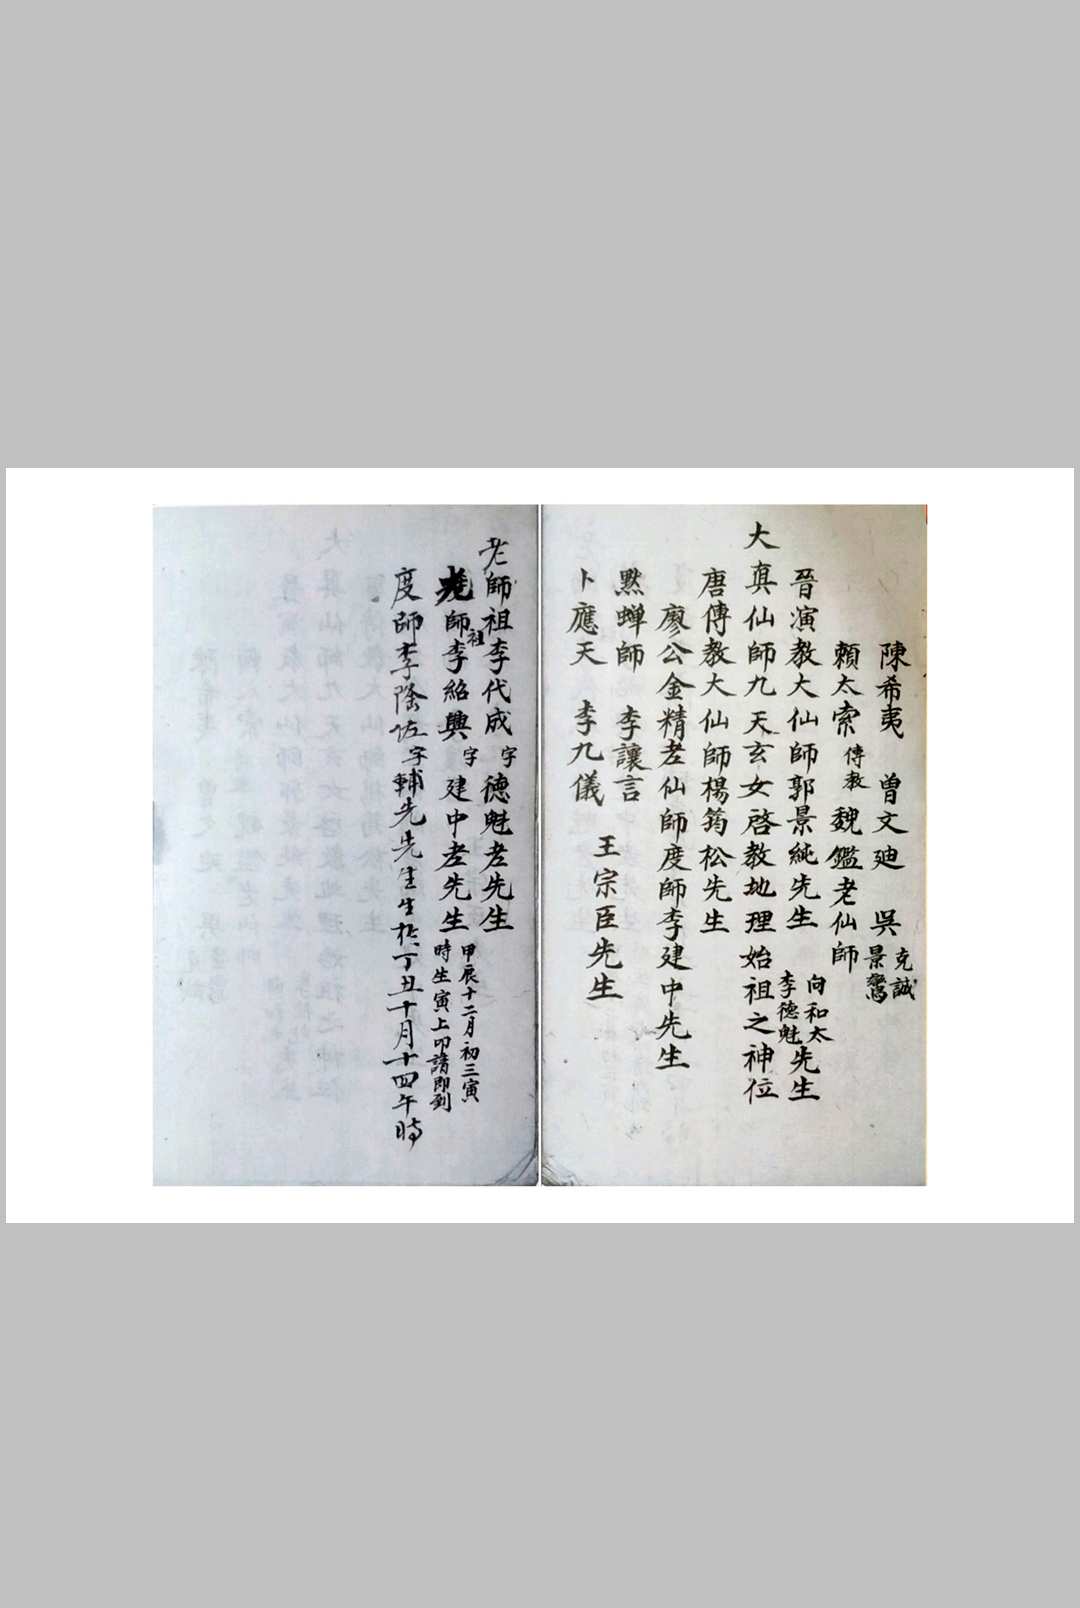 陳希夷　曾文迪　吳克誠
景鸞
賴太索　傳教　魏鑑老仙師
晉演教大仙師郭景純先生　向和太
李德魁　先生
大真仙師九天玄女啓教地理始祖之神位
唐傳教大仙師楊筠松先生
廖公金精老仙師度師李建中先生
黙蟬師　李讓言
卜應天　李九儀　王宗臣先生
老師祖李代成字德魁老先生
師祖李紹興字建中老先生　甲辰十二月初三寅
時生寅上叩請即到
度師李隂佐字輔先先生生扵丁丑十月十四午時